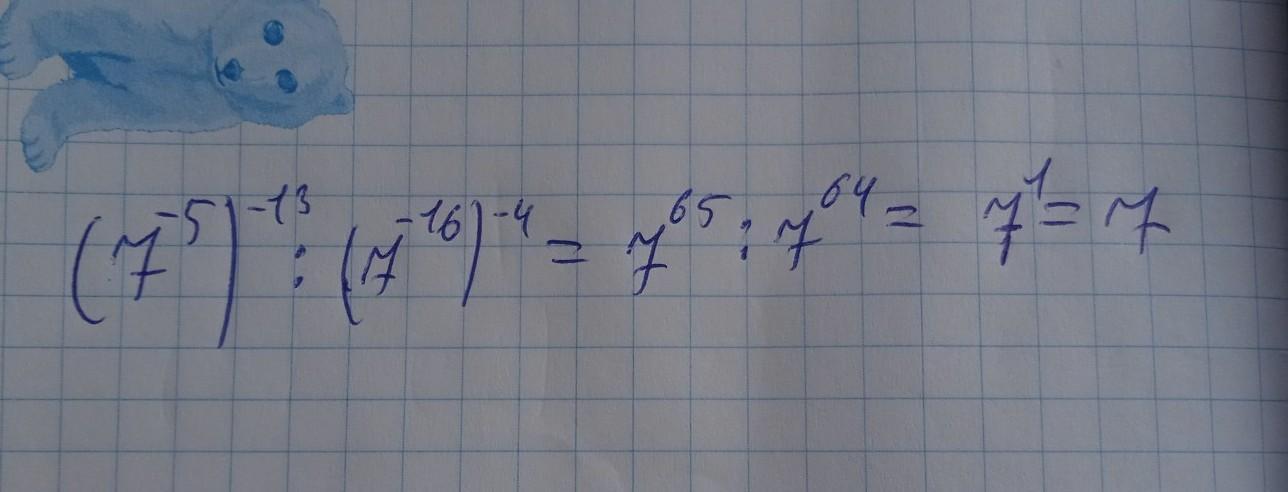 (7⁻⁵)⁻¹³ : (7⁻¹⁶)⁻⁴ = 7⁶⁵ : 7⁶⁴ = 7¹ = 7